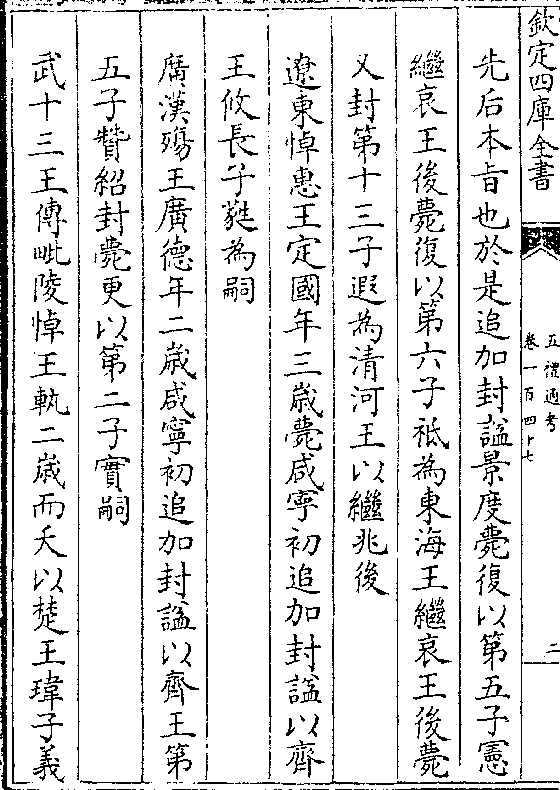 欽定四庫全書
五禮通考
卷一百四十七
二
先后本旨也於是追加封諡景度薨復以第五子憲
繼哀王後薨復以第六子祗為東海王繼哀王後薨
又封第十三子遐為清河王以繼兆後
遼東悼惠王定國年三歲薨咸寧初追加封諡以齊
王攸長子蕤為嗣
廣漢殤王廣德年二歲咸寧初追加封諡以齊王第
五子贊紹封薨更以第二子實嗣
武十三王傳毗陵悼王軌二歲而夭以楚王瑋子義